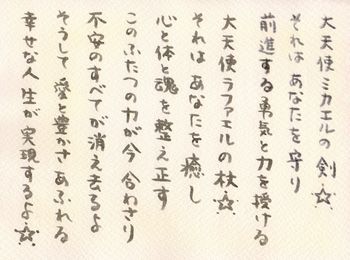 大天使ミカエルの剣☆
それはあなたを守り
前進する勇気と力を授ける
大天使ラファエルの杖☆
それはあなたを癒し
心と体と魂を整え正す
このふたつの力が今合わさり
不安のすべてが消え去るよ
そうして愛と豊かさあふれる
幸せな人生が実現するよ☆